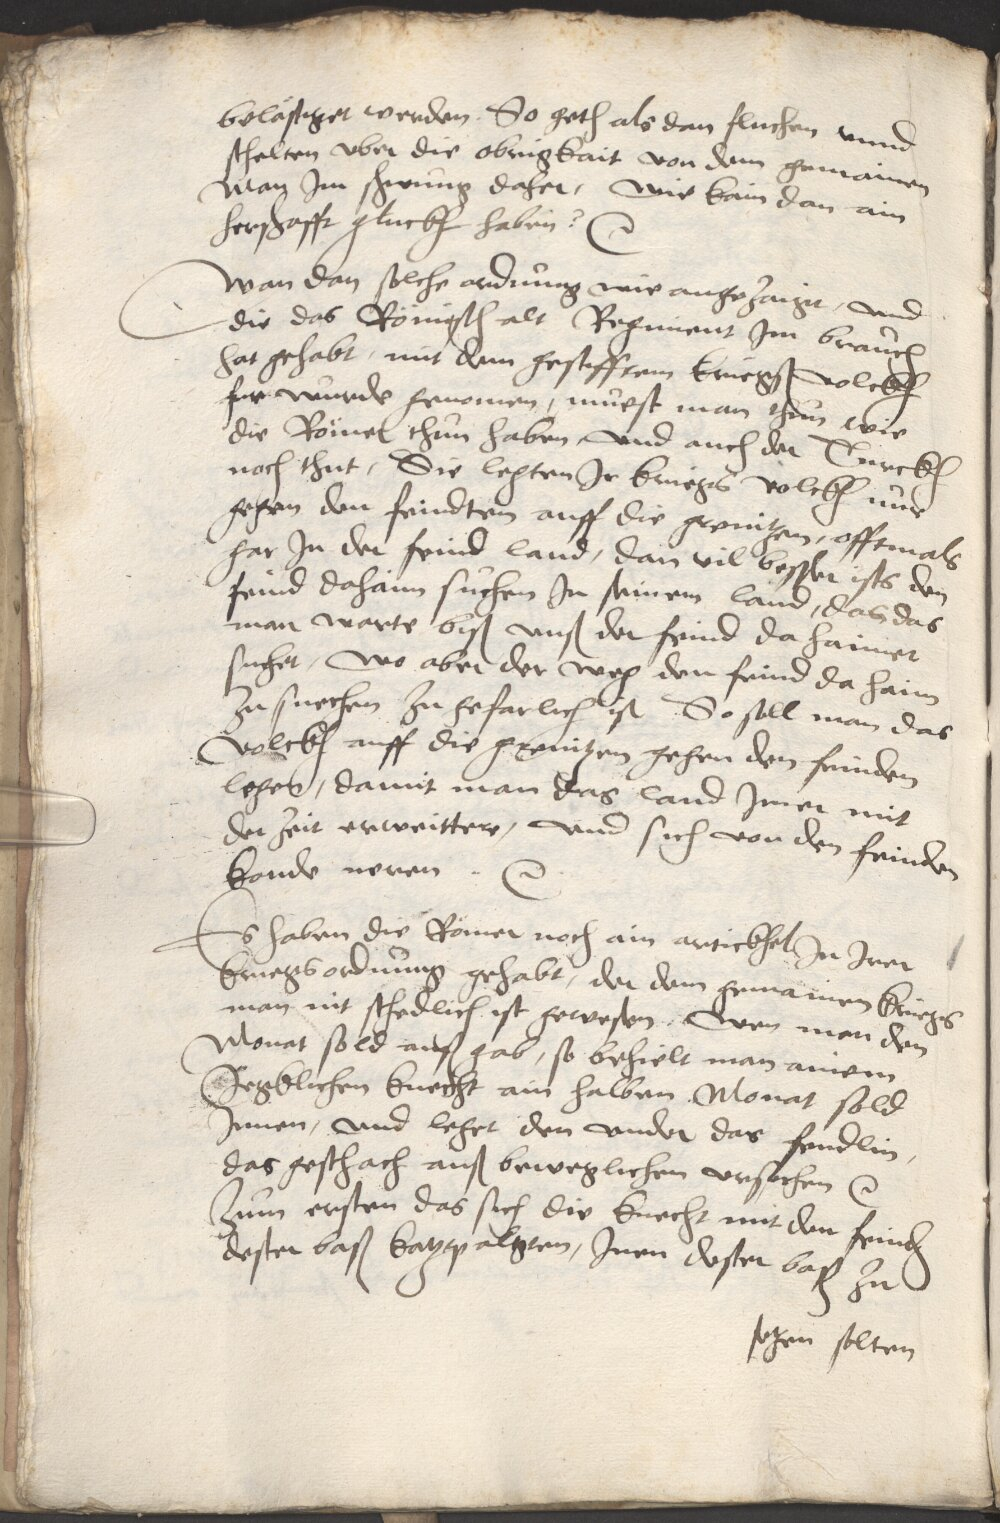 belästiget werden. So geth als dan fluchen unnd
schelten uber die obrigkait von dem gemainen
Man Im schwung daher, wie kain dan ain
herschafft gluckh haben?
Wan dan solche ordnung wie angezaigt, und
die das Römisch alt Regiment Im brauch
hat gehabt, mit dem gestifften kriegß volckh
fur wurde genomen, muest man thun wie
die Römer thun haben und auch der Türckh
noch thut, Sie legten Ir kriegs volckh nur
gegen den feindten auff die grenitzen, offtmals
gar In der feind land, dan vil besser ists den
feind dahaim suchen In seinem land, dan das
man warte biß unß der feind da haimet
suchet, wo aber der weg den feind da haim
Zu suechen Zu gefarlich ist So soll man das
volckh auff die grenitzen gegen den feinden
legen, damit man das land Imer mit
der Zeit erweittere, und sich von den feinden
konde neren.
Es haben die Römer noch ain artickhel In Irer
kriegs ordnung gehabt, der dem gemainen kriegs
man nit schedlich ist gewesen. Wen man den
Monat sold auß gab, so behielt man ainem
Iegklichen knecht ain halben Monat sold
Innen, und leget den under das fendlin,
das geschach auß beweglichen ursachen
Zum ersten das sich die knecht mit den feindt
dester baß katzpalgten, Inen dester baß Zu
setzen solten